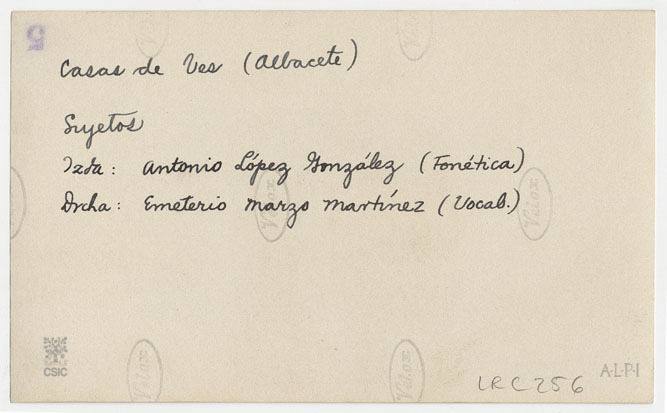 5
Casas de Ves (Albacete)
Sujetos
Izda: Antonio López González (Fonética)
Drcha: Emeterio Marzo Martínez (Vocab.)
Velox
Velox
Velox
Velox
CSIC
LRC256
A·L·P·I